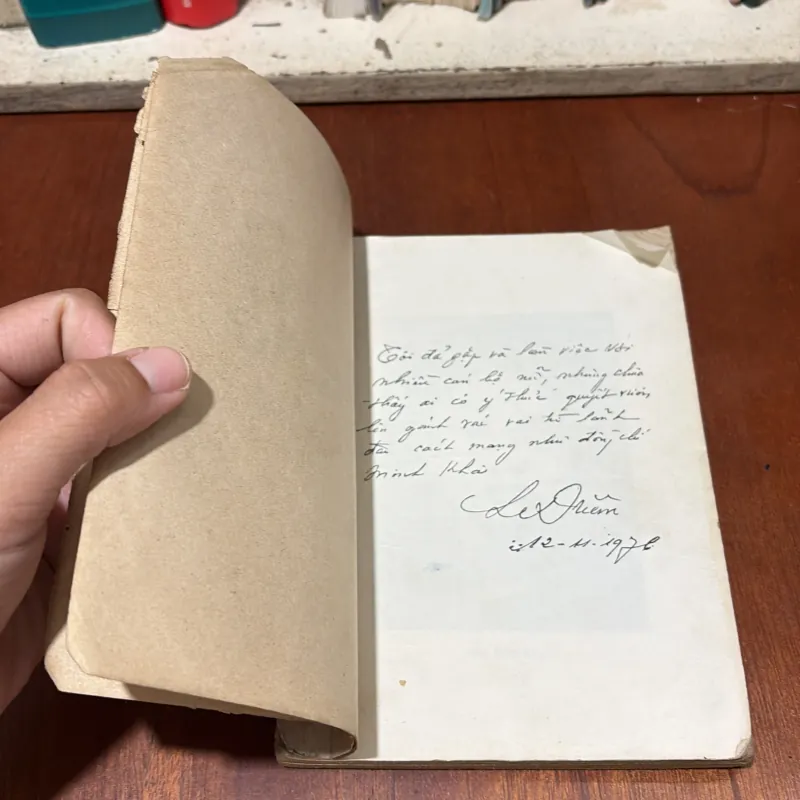 Tôi đã gặp và làm việc với
nhiều cán bộ nữ, nhưng chưa
thấy ai có ý thức quyết vươn
lên gánh vai trò lãnh
đạo cách mạng như đồng chí
Minh Khai
Le Duẩn
12-11-1976